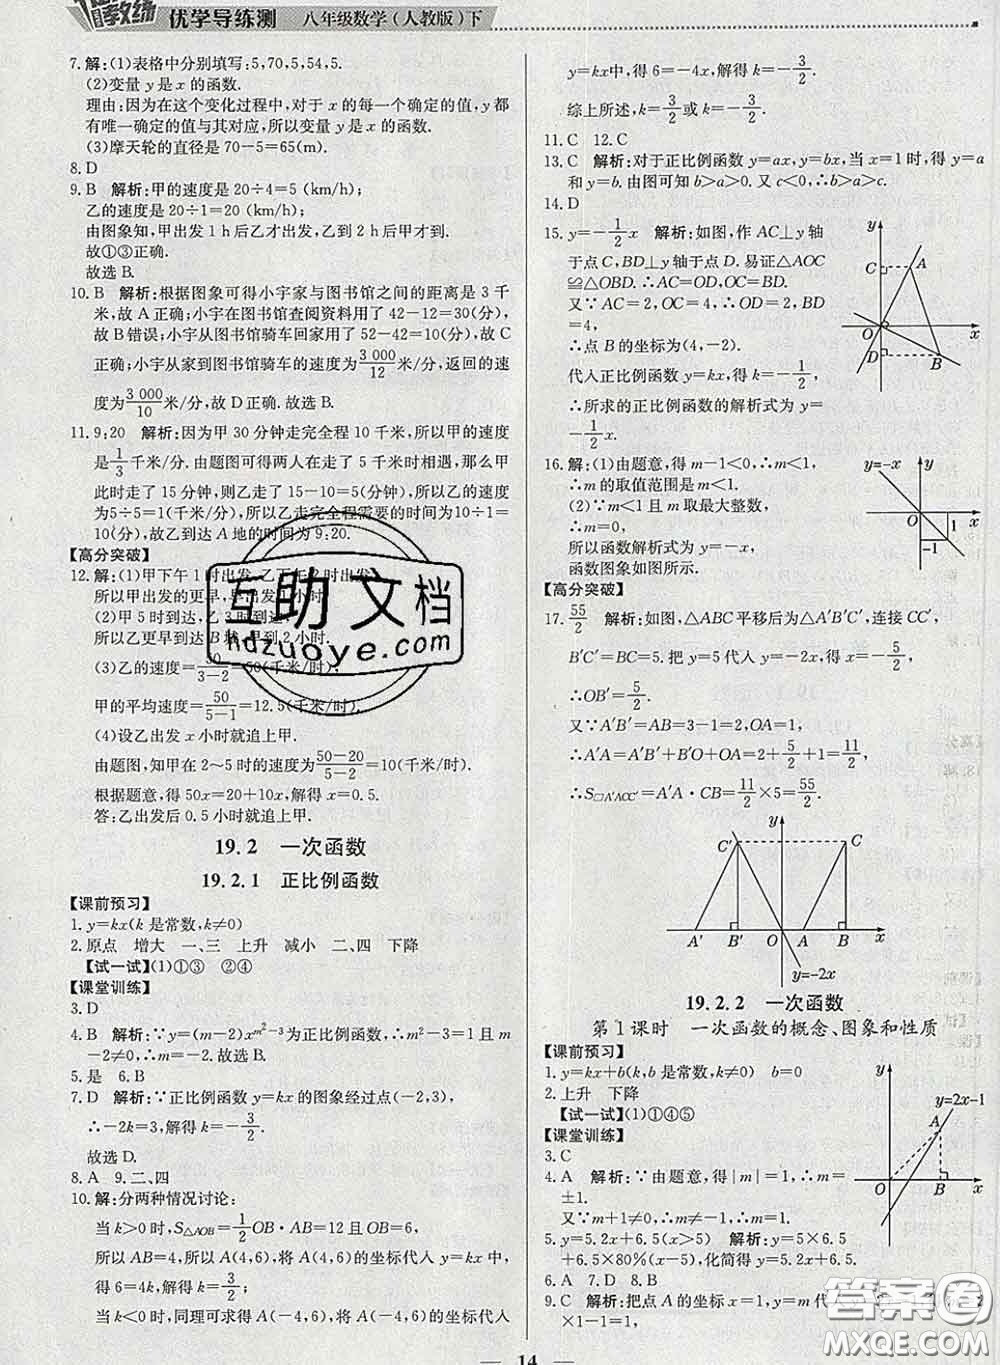 优学导练测 八年级数学(人教版)下
7.解:(1)表格中分别填写:5,70,5,54,5.
(2)变量 y 是 x 的函数.
理由:因为在这个变化过程中,对于 x 的每一个确定的值,y 都
有唯一确定的值与其对应,所以变量 y 是 x 的函数.
(3)摩天轮的直径是 70-5=65(m).
8.D
9.B 解析:甲的速度是 20÷4=5 (km/h);
乙的速度是 20÷1=20 (km/h);
由图象知,甲出发 1 h后乙才出发,乙到 2 h后甲才到.
故①③正确.
故选 B.
10.B 解析:根据图象可得小宇家与图书馆之间的距离是 3 千
米,故 A 正确;小宇在图书馆查阅资料用了 42-12=30(分),
故 B 错误;小宇从图书馆骑车回家用了 52-42=10(分),故 C
正确;小宇从家到图书馆骑车的速度为3 000/12米/分,返回的速
度为3 000/10米/分,故 D 正确.故选 B.
11.9:20 解析:因为甲 30 分钟走完全程 10 千米,所以甲的速度
是1/3千米/分.由题图可得两人在走了 5 千米时相遇,那么甲
此时走了 15 分钟,则乙走了 15-10=5(分钟),所以乙的速度
为5÷5=1(千米/分),所以乙走完全程需要的时间为10÷1=
10(分),故乙到达 A 地的时间为 9:20.
【高分突破】
12.解:(1)甲下午 1 时出发,乙下午 2 时出发,
所以甲出发的更早,早出发 1 小时.
(2)甲 5 时到达,乙 3 时到达,
所以乙更早到达 B 城,早到 2 小时.
(3)乙的速度=50/3-2=50(千米/时);
甲的平均速度=50/5-1=12.5(千米/时).
(4)设乙出发 x 小时就追上甲.
由题图,知甲在 2~5 时的速度为50-20/5-2=10(千米/时).
根据题意,得 50x=20+10x,解得 x=0.5.
答:乙出发后 0.5 小时就追上甲.
19.2 一次函数
19.2.1 正比例函数
【课前预习】
1.y=kx(k 是常数,k≠0)
2.原点 增大 一、三 上升 减小 二、四 下降
【试一试】(1)①③ ②④
【课堂训练】
3.D
4.B 解析:∵y=(m-2)x^{m²-3}为正比例函数,∴m²-3=1,且
m-2≠0,∴m=-2.故选 B.
5.是 6.B
7.D 解析:∵正比例函数 y=kx的图象经过点(-2,3),
∴-2k=3,解得 k=-3/2.
故选 D.
8.A 9.二、四
10.解:分两种情况讨论:
当 k>0时,S△AOB=1/2OB·AB=12且 OB=6,
所以 AB=4,所以 A(4,6),将 A(4,6)的坐标代入 y=kx 中,
得 6=4k,解得 k=3/2;
当 k<0 时,同理可求得 A(-4,6),将 A(-4,6)的坐标代入
y=kx中,得 6=-4x,解得 k=-3/2.
综上所述,k=3/2或 k=-3/2.
11.C 12.C
13.C 解析:对于正比例函数 y=ax,y=bx,当 x=1时,得 y=a
和 y=b.由图可知 b>a>0.又 c<0,∴b>a>c.
14.D
15.y=-1/2x 解析:如图,作 AC⊥y 轴
于点 C,BD⊥y 轴于点 D.易证△AOC
≌△OBD.∴AC=OD,OC=BD.
又∵AC=2,OC=4,∴OD=2,BD=4.
∴点 B 的坐标为(4,-2).
代入正比例函数 y=kx,得 k=-1/2,
∴所求的正比例函数的解析式为 y=
-1/2x.
C A O x D B
16.解:(1)由题意,得 m-1<0,∴m<1.
∴m的取值范围是 m<1.
(2)∵m<1 且 m取最大整数,
∴m=0.
所以函数解析式为 y=-x.
函数图象如图所示.
y=-x y O 1 x -1
【高分突破】
17.55/2 解析:如图,△ABC 平移后为△A′B′C′,连接 CC′,
B′C′=BC=5.把 y=5 代入 y=-2x,得 x=-5/2,
∴OB′=5/2.
又∵A′B′=AB=3-1=2,OA=1,
∴A′A=A′B′+B′O+OA=2+5/2+1=11/2,
∴S□A′ACC′=A′A·CB=11/2×5=55/2.
y C′ C A′ B′ O A B x y=-2x
19.2.2 一次函数
第1课时 一次函数的概念、图象和性质
【课前预习】
1.y=kx+b(k,b 是常数,k≠0) b=0
2.上升 下降
【试一试】(1)①④⑤
【课堂训练】
3.C
4.A 解析:∵由题意,得|m|=1,∴m=
±1.
又∵m+1≠0,∴m≠-1,∴m=1.
y y=2x-1 A O B x
5.y=5.2x+6.5(x>5) 解析:y=5×6.5
+6.5×80%(x-5),化简得 y=5.2x+6.5.
6.A 7.D 8.B
9.C 解析:把点 A 的坐标 x=1,y=m代
×1-1=1.
14
互助文档
hdzuoye.com
答案圈
MXQE.COM